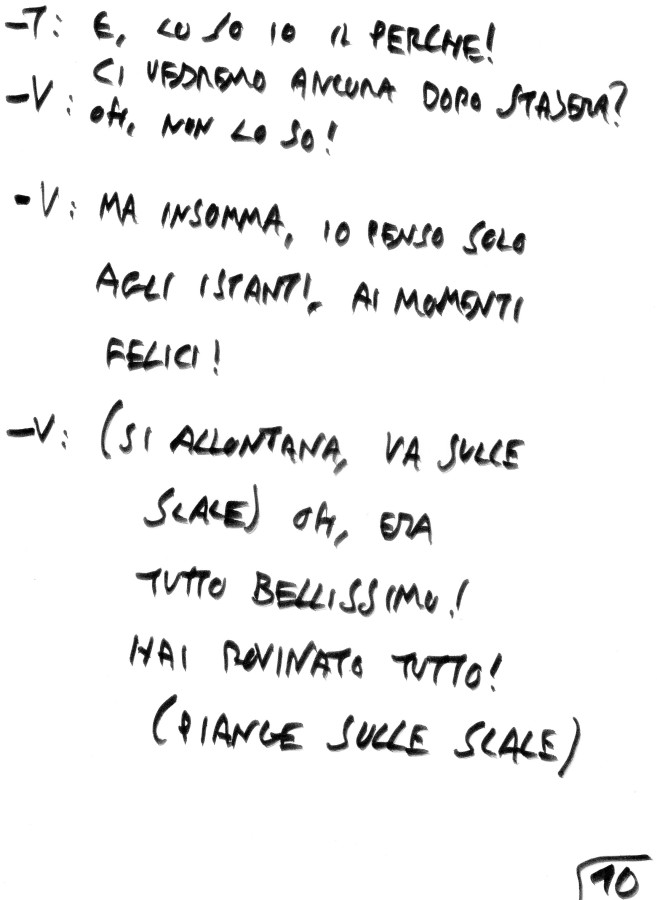 -T: E, LO SO IO IL PERCHE!
CI VEDREMO ANCORA DOPO STASERA?
-V: OH, NON LO SO!
-V: MA INSOMMA, IO PENSO SOLO
AGLI ISTANTI, AI MOMENTI
FELICI!
-V: (SI ALLONTANA, VA SULLE
SCALE) OH, ERA
TUTTO BELLISSIMO!
HAI ROVINATO TUTTO!
(PIANGE SULLE SCALE)
10